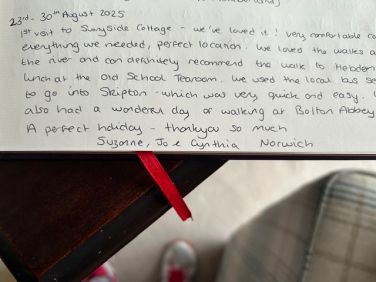 23rd - 30th August 2025
1st visit to Sunnyside Cottage - we've loved it! very comfortable
everything we needed, perfect location. We loved the walks a
the river and can definitely recommend the walk to Hebden
lunch at the Old School Tearoom. We used the local bus se
to go into Skipton - which was very quick and easy.
also had a wonderful day of walking at Bolton Abbey
A perfect holiday - thankyou so much
Suzanne, Jo & Cynthia Norwich